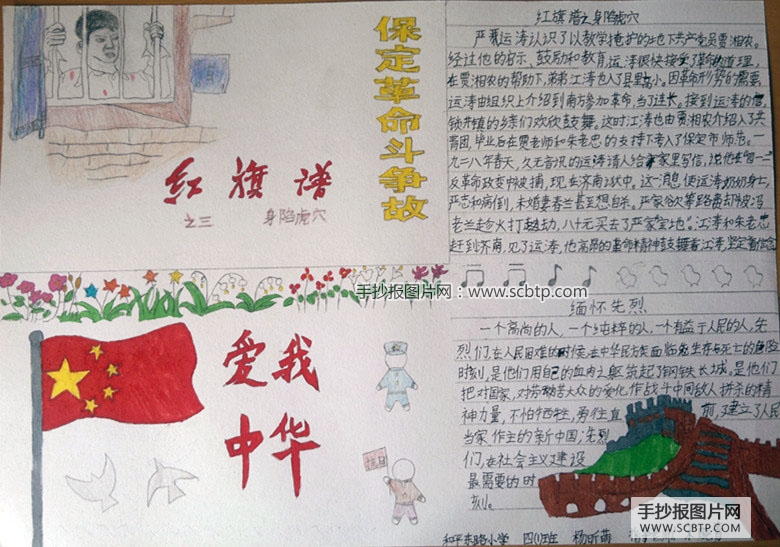 保定革命斗争故
红旗谱
之三 身陷虎穴
红旗谱之身陷虎穴
严运涛认识了以教学掩护的地下共产党员贾湘农。
经过他的启示、鼓励和教育,运涛很快接受了革命的道理,
在贾湘农的帮助下,弟弟江涛也入了县里高小。因革命形势的需要,
运涛由组织上介绍到南方参加革命,当了连长。接到运涛的信,
锁井镇的乡亲们欢欣鼓舞。这时江涛也由贾湘农介绍入了共
青团,毕业后在贾老师和朱老忠的支持下考入了保定市师范。一
九二八年春天,久无音讯的运涛请人给家里写信,说他在
反革命政变中被捕,现在济南狱中。这一消息使运涛奶奶身亡,
严志和病倒,未婚妻春兰甚至想自杀。严家俗次筹路费却被冯
老兰趁火打劫,八十元买去了严家宝地。江涛和朱老忠
赶到济南,见了运涛,他高昂的革命精神鼓舞着江涛,坚定着信念
手抄报图片网:www.scbtp.com
缅怀先烈
一个高尚的人,一个纯粹的人,一个有益于人民的人,先
烈们,在人民困难的时候,在中华民族面临生存与死亡的危险
时刻,是他们用自己的血肉之躯筑起了钢铁长城,是他们
把对国家,对劳动苦大众的爱化作战斗中同敌人拼杀的精
神力量,不怕牺牲,勇往直前,建立了人民
当家作主的新中国;先烈
们,在社会主义建设
最需要的时
刻。
爱我
中华
抗日
和平东路小学 四(1)班
手抄报图片网
WWW.SCBTP.COM